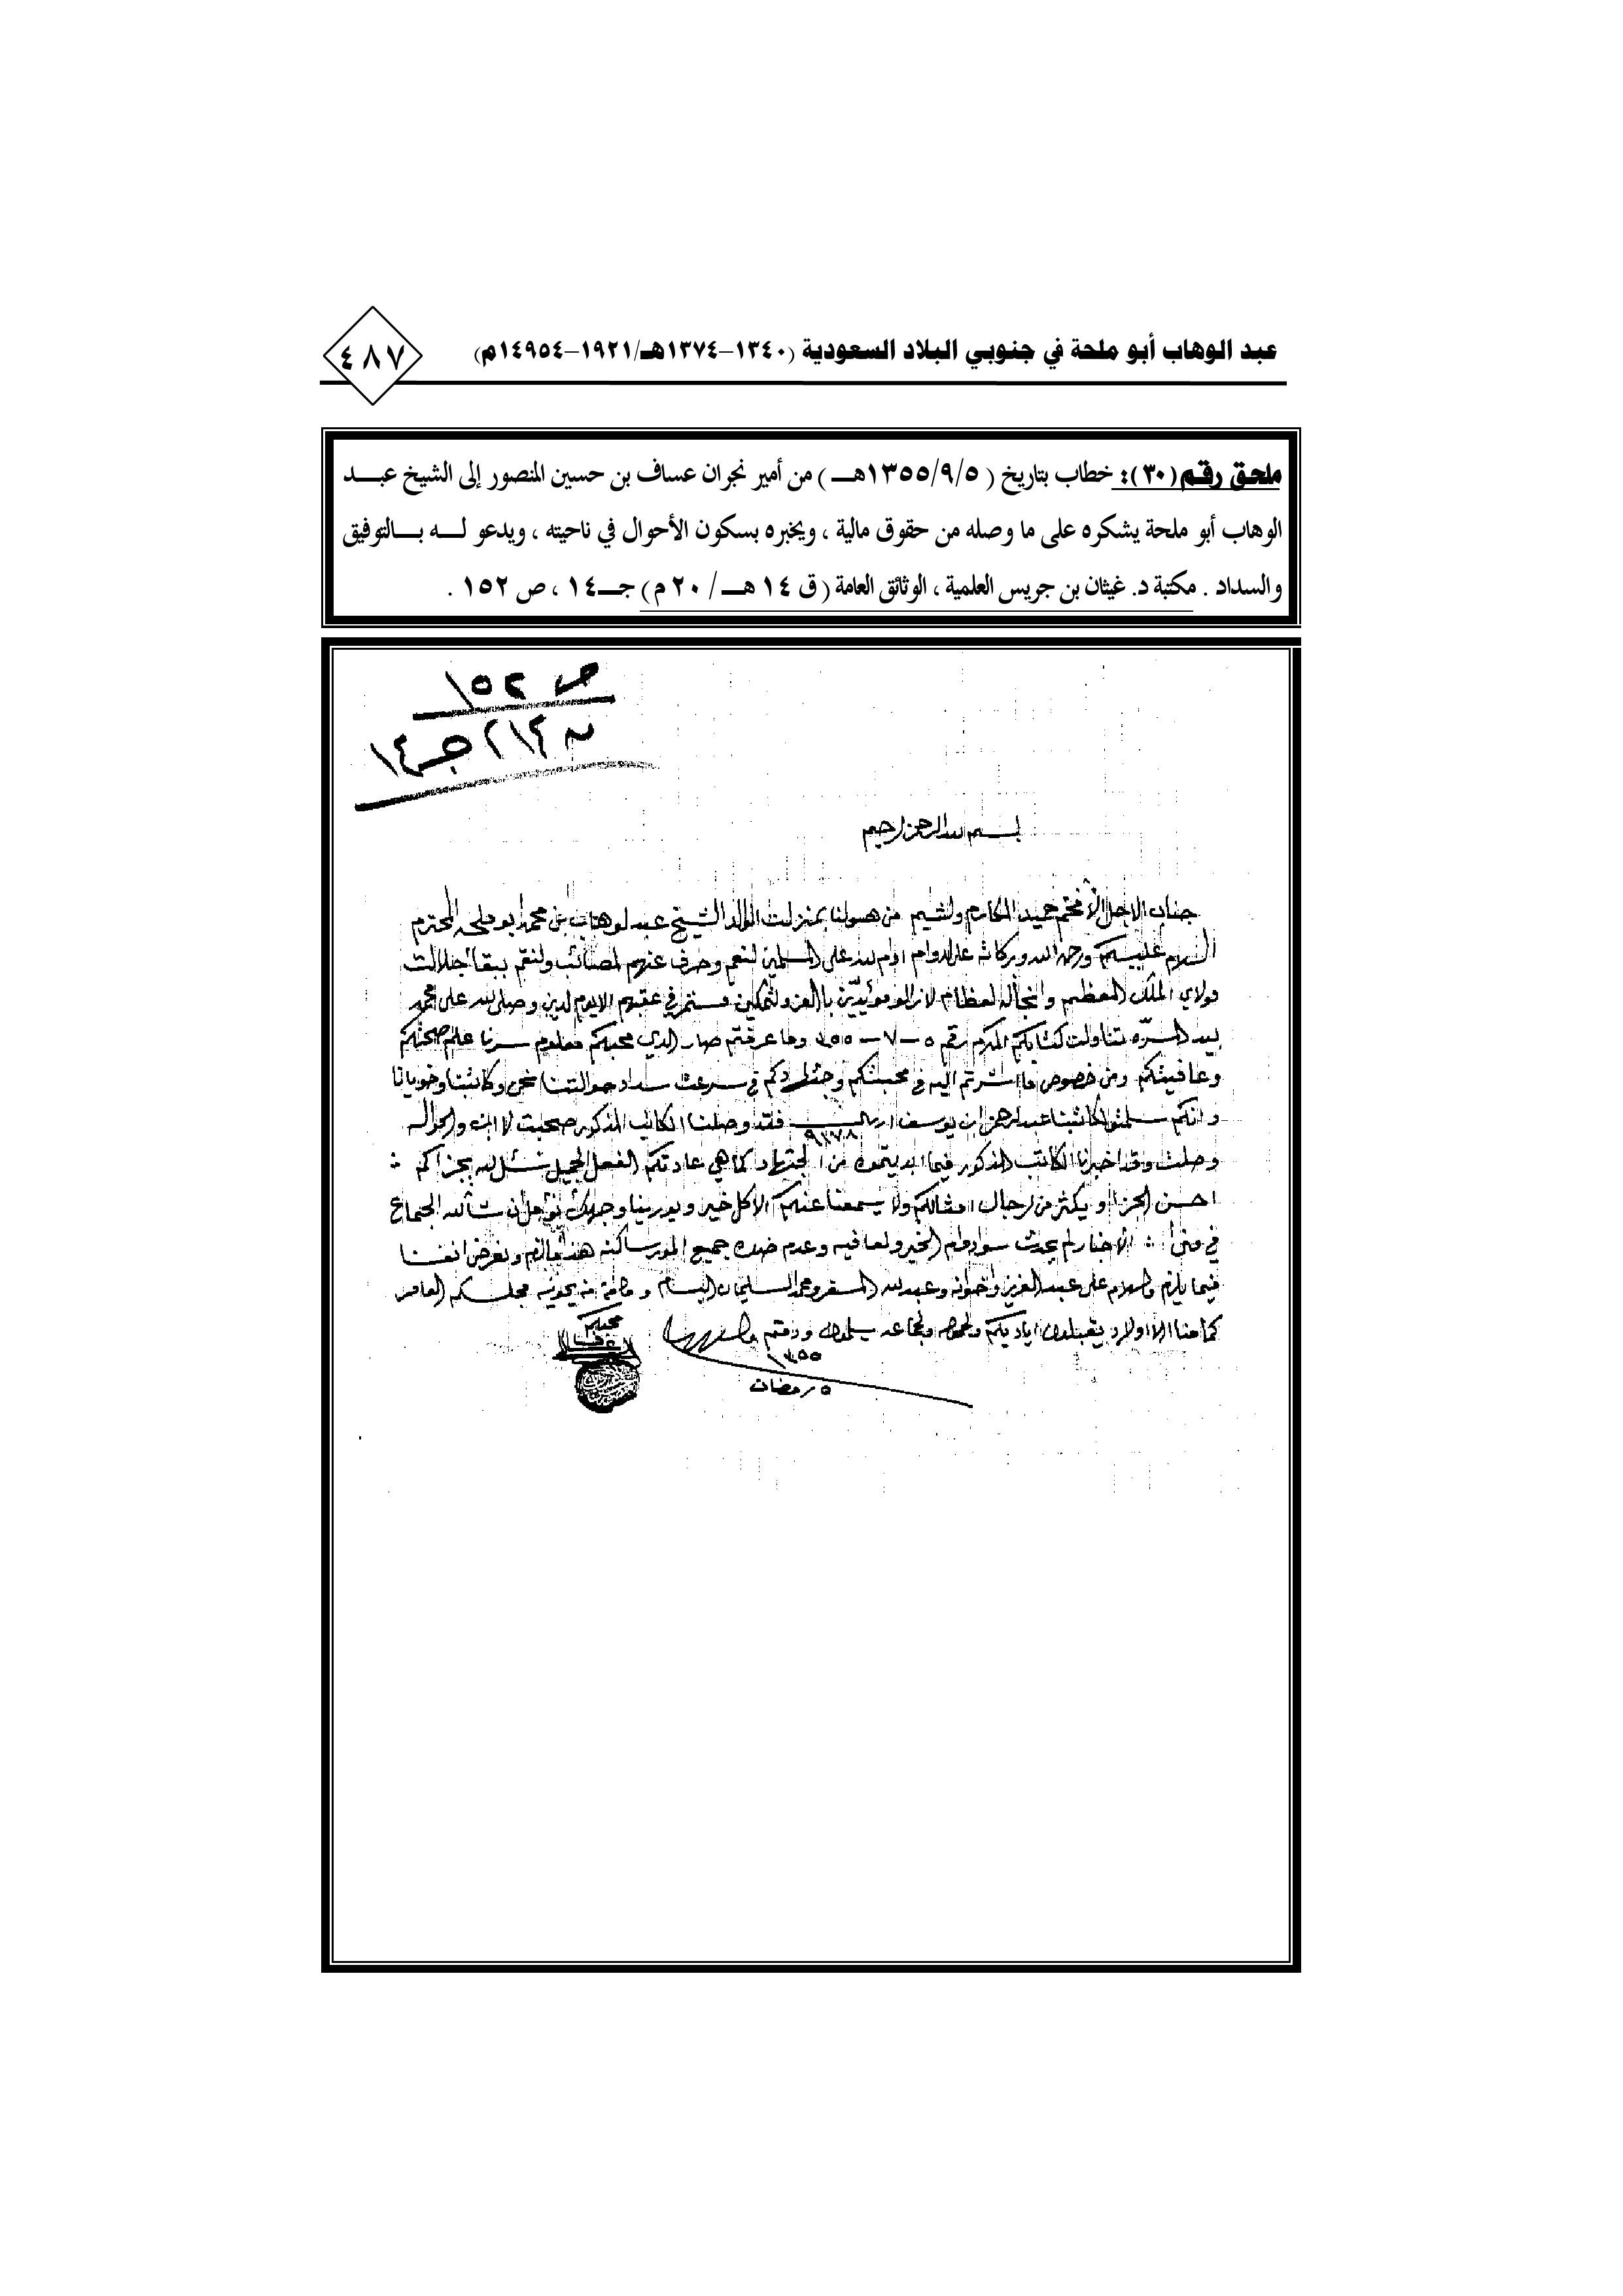 عبد الوهاب أبو ملحة في جنوبي البلاد السعودية (١٣٤٠-١٣٧٤هـ/١٩٢١-١٤٩٥٤م)
٤٨٧
ملحق رقم (٣٠): خطاب بتاريخ ( ١٣٥٥/٩/٥هــ ) من أمير نجران عساف بن حسين المنصور إلى الشيخ عبـــد
الوهاب أبو ملحة يشكره على ما وصله من حقوق مالية ، ويخبره بسكون الأحوال في ناحيته ، ويدعو لـــه بـــالتوفيق
والسداد . مكتبة د. غيثان بن جريس العلمية ، الوثائق العامة ( ق ١٤ هـــ / ٢٠ م ) جـــ١٤ ، ص ١٥٢ .
ص ١٥٢
جـ ١٤
بسم الله الرحمن الرحيم
جناب الاجل الأفخم حميد المكارم والشيم من هو لنا بمنزلت الوالد الشيخ عبد لوهاب بن محمد ابو ملحه المحترم
السلام عليكم ورحمة الله وبركاته على الدوام ادام الله على المسلمين النعم وصرف عنهم المصائب والنقم ببقا جلالت
مولاي الملك المعظم وانجاله العظام لا زالو مؤيدين بالعز والتمكين مستمر في عقبهم الا يوم الدين وصلى الله على محمد
بيد المسره تناولت كتابكم المكرم رقم ٥-٧-٥٥ وما عرفتم صار الدي محبكم معلوم سرنا علم صحتكم
وعافيتكم ومن خصوص ما اشرتم اليه في محبتكم وجتهادكم في سرعت سداد حوالتنا نحن وكاتبنا وخويانا
وانكم سلمتو الكاتبنا عبد الرحمن ابن يوسف ٩١٧٨ فقد وصلنا الكاتب المذكور صحبت والحواله
وصلت وقد اخبرنا الكاتب المذكور فيما ابديتموه من الجتهاد كما هي عادتكم الفعل الجميل نسئل الله يجزاكم
احسن الجزا ويكثر من الرجال امثالكم ولا يسمعنا عنكم الا كل خير ويورينا وجهك
الأخبار لم يحدث سوا دوام الخير والعافيه وعدم ضده جميع المور ساكنه هذا مالزم
فيما يلزم والسلام على عبد العزيز وخوانه وعبد الله المسفر ومحمد السليمان البسام مجلسكم العامر
كما منا الاولاد يقبلون اياديكم يسلمون ودمتم والسلام
١٣٥٥
٥ رمضان
محبكم
عساف